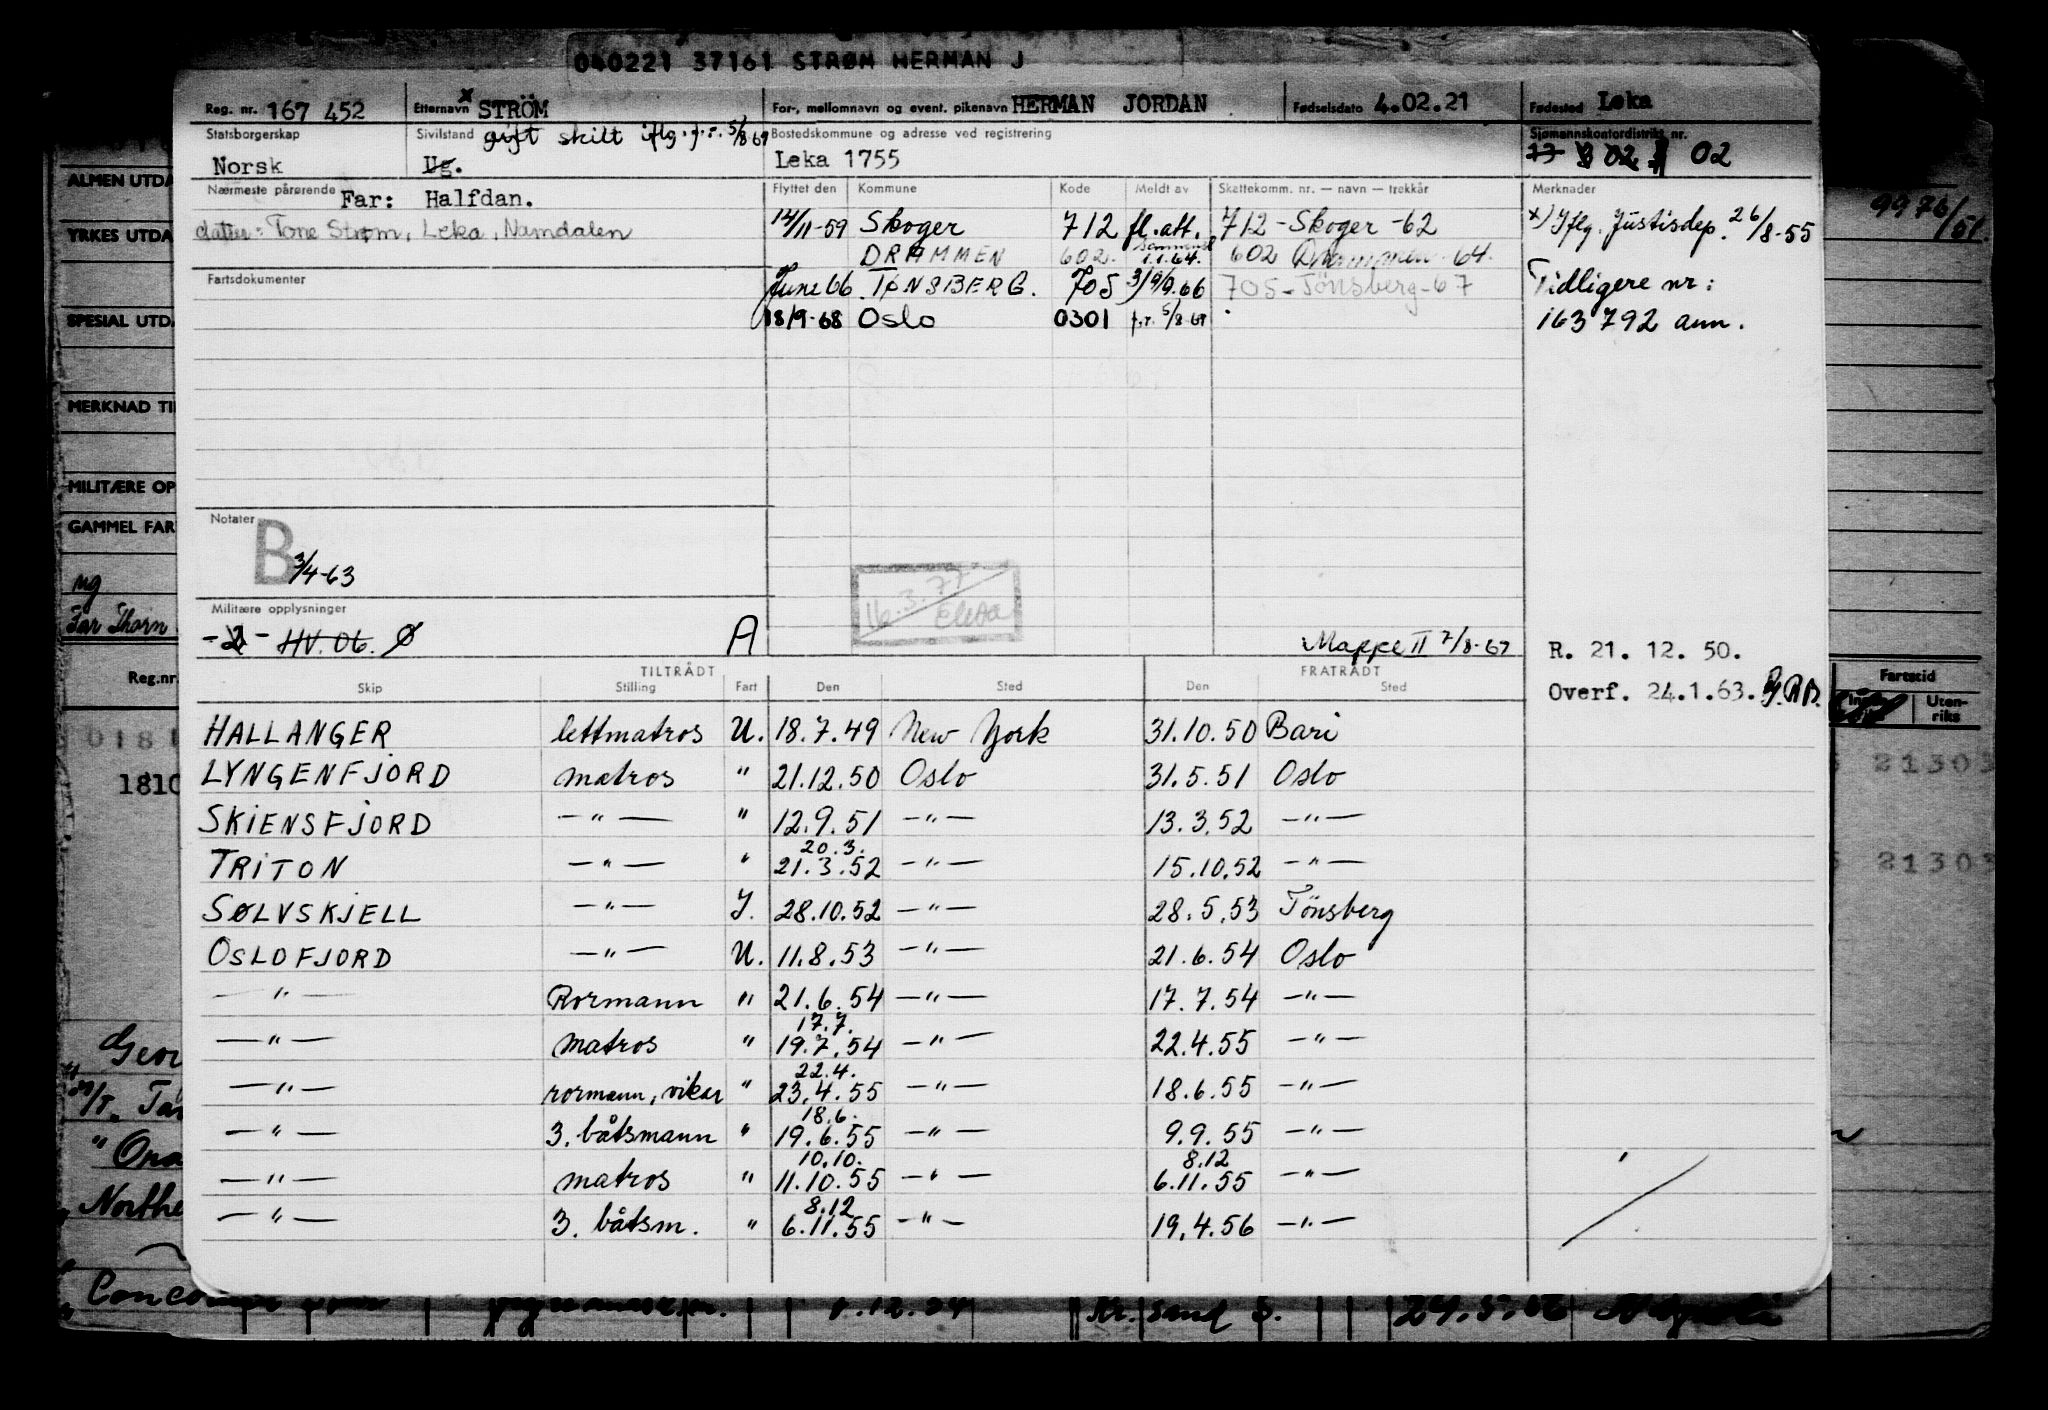 040221 37161 STRØM HERMAN J
Reg. nr. 167 452 Etternavn x STRÖM For-, mellomnavn og event. pikenavn HERMAN JORDAN Fødselsdato 4.02.21 Fødested Leka
Statsborgerskap Norsk
Sivilstand gift skilt iflg. f.r. 5/8 69
Ug.
Bostedskommune og adresse ved registrering
Leka 1755
Sjømannskontordistrikt nr.
13 02 02
Nærmeste pårørende Far: Halfdan.
datter: Tone Strøm, Leka, Namdalen
Fartsdokumenter
Flyttet den Kommune Kode Meldt av Skattekomm. nr. — navn — trekkår Merknader
14/11-59 Skoger 712 fl.att. 712 - Skoger - 62
DRAMMEN 602. 1.1.64. 602 Drammen - 64.
June 66 TØNSBERG. 705 3/9.66 705 - Tönsberg - 67
18/9-68 Oslo 0301 f.r. 5/8-69
x) Iflg. Justisdep. 26/8-55
Tidligere nr:
163 792 ann.
Notater
B 3/4-63
16.3.77
Militære opplysninger
-2- HV. 06. Ø A
Mappe II 7/8-67
R. 21. 12. 50.
Overf. 24.1.63.
TILTRÅDT FRATRÅDT
Skip Stilling Fart Den Sted Den Sted
HALLANGER lettmatros U. 18.7.49 New York 31.10.50 Bari
LYNGENFJORD matros " 21.12.50 Oslo 31.5.51 Oslo
SKIENSFJORD —"— " 12.9.51 —"— 13.3.52 —"—
20.3.
TRITON —"— " 21.3.52 —"— 15.10.52 —"—
SØLVSKJELL —"— I. 28.10.52 —"— 28.5.53 Tönsberg
OSLOFJORD —"— U. 11.8.53 —"— 21.6.54 Oslo
—"— Rormann " 21.6.54 —"— 17.7.54 —"—
17.7.
—"— matros " 19.7.54 —"— 22.4.55 —"—
22.4.
—"— rormann, vikar " 23.4.55 —"— 18.6.55 —"—
18.6.
—"— 3. båtsmann " 19.6.55 —"— 9.9.55 —"—
10.10. 8.12
—"— matros " 11.10.55 —"— 6.11.55 —"—
8.12
—"— 3. båtsm. " 6.11.55 —"— 19.4.56 —"—
ALMEN UTDA
YRKES UTDA
SPESIAL UTD
MERKNAD TI
MILITÆRE OP
GAMMEL FAR
ug
Far Thorn
Reg.nr.
0181
1810
9976/51.
Fartstid
Uten-
riks
21303
21303
1.12.54 Kr. sand S.